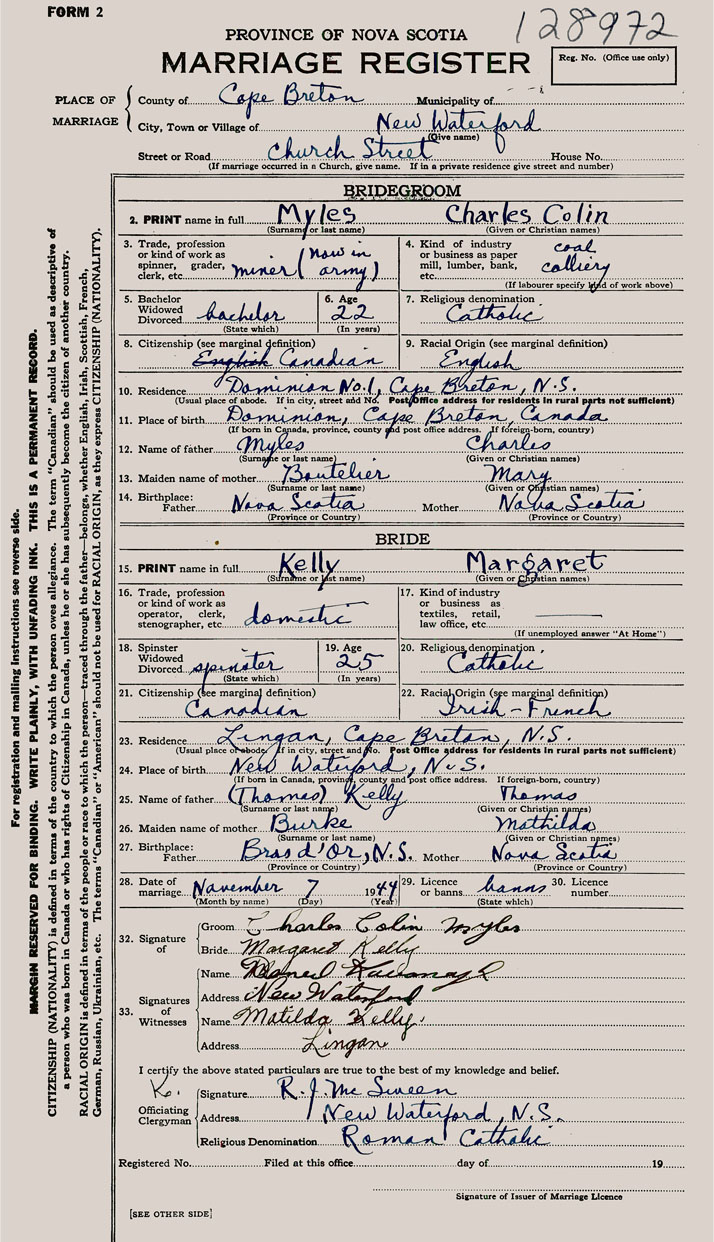 FORM 2
128972
PROVINCE OF NOVA SCOTIA
MARRIAGE REGISTER
Reg. No. (Office use only)
PLACE OF MARRIAGE
County of Cape Breton Municipality of
City, Town or Village of New Waterford
(Give name)
Street or Road Church Street House No.
(If marriage occurred in a Church, give name. If in a private residence give street and number)
BRIDEGROOM
2. PRINT name in full Myles Charles Colin
(Surname or last name) (Given or Christian names)
3. Trade, profession or kind of work as spinner, grader, clerk, etc. miner (now in army)
4. Kind of industry or business as paper mill, lumber, bank, etc. coal colliery
(If labourer specify kind of work above)
5. Bachelor Widowed Divorced bachelor
(State which)
6. Age 22
(In years)
7. Religious denomination Catholic
8. Citizenship (see marginal definition) English Canadian
9. Racial Origin (see marginal definition) English
10. Residence Dominion No. 1, Cape Breton, N.S.
(Usual place of abode. If in city, street and No. Post Office address for residents in rural parts not sufficient)
11. Place of birth Dominion, Cape Breton, Canada
(If born in Canada, province, county and post office address. If foreign-born, country)
12. Name of father Myles Charles
(Surname or last name) (Given or Christian names)
13. Maiden name of mother Boutelier Mary
(Surname or last name) (Given or Christian names)
14. Birthplace: Father Nova Scotia Mother Nova Scotia
(Province or Country) (Province or Country)
BRIDE
15. PRINT name in full Kelly Margaret
(Surname or last name) (Given or Christian names)
16. Trade, profession or kind of work as operator, clerk, stenographer, etc. domestic
17. Kind of industry or business as textiles, retail, law office, etc.
(If unemployed answer "At Home")
18. Spinster Widowed Divorced spinster
(State which)
19. Age 25
(In years)
20. Religious denomination Catholic
21. Citizenship (see marginal definition) Canadian
22. Racial Origin (see marginal definition) Irish-French
23. Residence Lingan, Cape Breton, N.S.
(Usual place of abode. If in city, street and No. Post Office address for residents in rural parts not sufficient)
24. Place of birth New Waterford, N.S.
(If born in Canada, province, county and post office address. If foreign-born, country)
25. Name of father (Thomas) Kelly Thomas
(Surname or last name) (Given or Christian names)
26. Maiden name of mother Burke Mathilda
(Surname or last name) (Given or Christian names)
27. Birthplace: Father Bras d'Or, N.S. Mother Nova Scotia
(Province or Country) (Province or Country)
28. Date of marriage November 7 1944
(Month by name) (Day) (Year)
29. Licence or banns banns
(State which)
30. Licence number
32. Signature of
Groom Charles Colin Myles
Bride Margaret Kelly
33. Signatures of Witnesses
Name Kavanagh
Address New Waterford
Name Matilda Kelly
Address Lingan
I certify the above stated particulars are true to the best of my knowledge and belief.
Officiating Clergyman
Signature R. J. McSween
Address New Waterford, N.S.
Religious Denomination Roman Catholic
Registered No. Filed at this office day of 19
Signature of Issuer of Marriage Licence
[SEE OTHER SIDE]
For registration and mailing instructions see reverse side.
MARGIN RESERVED FOR BINDING. WRITE PLAINLY, WITH UNFADING INK. THIS IS A PERMANENT RECORD.
CITIZENSHIP (NATIONALITY) is defined in terms of the country to which the person owes allegiance. The term "Canadian" should be used as descriptive of
a person who was born in Canada or who has rights of Citizenship in Canada, unless he or she has subsequently become the citizen of another country.
RACIAL ORIGIN is defined in terms of the people or race to which the person—traced through the father—belongs, whether English, Irish, Scottish, French,
German, Russian, Ukrainian, etc. The terms "Canadian" or "American" should not be used for RACIAL ORIGIN, as they express CITIZENSHIP (NATIONALITY).